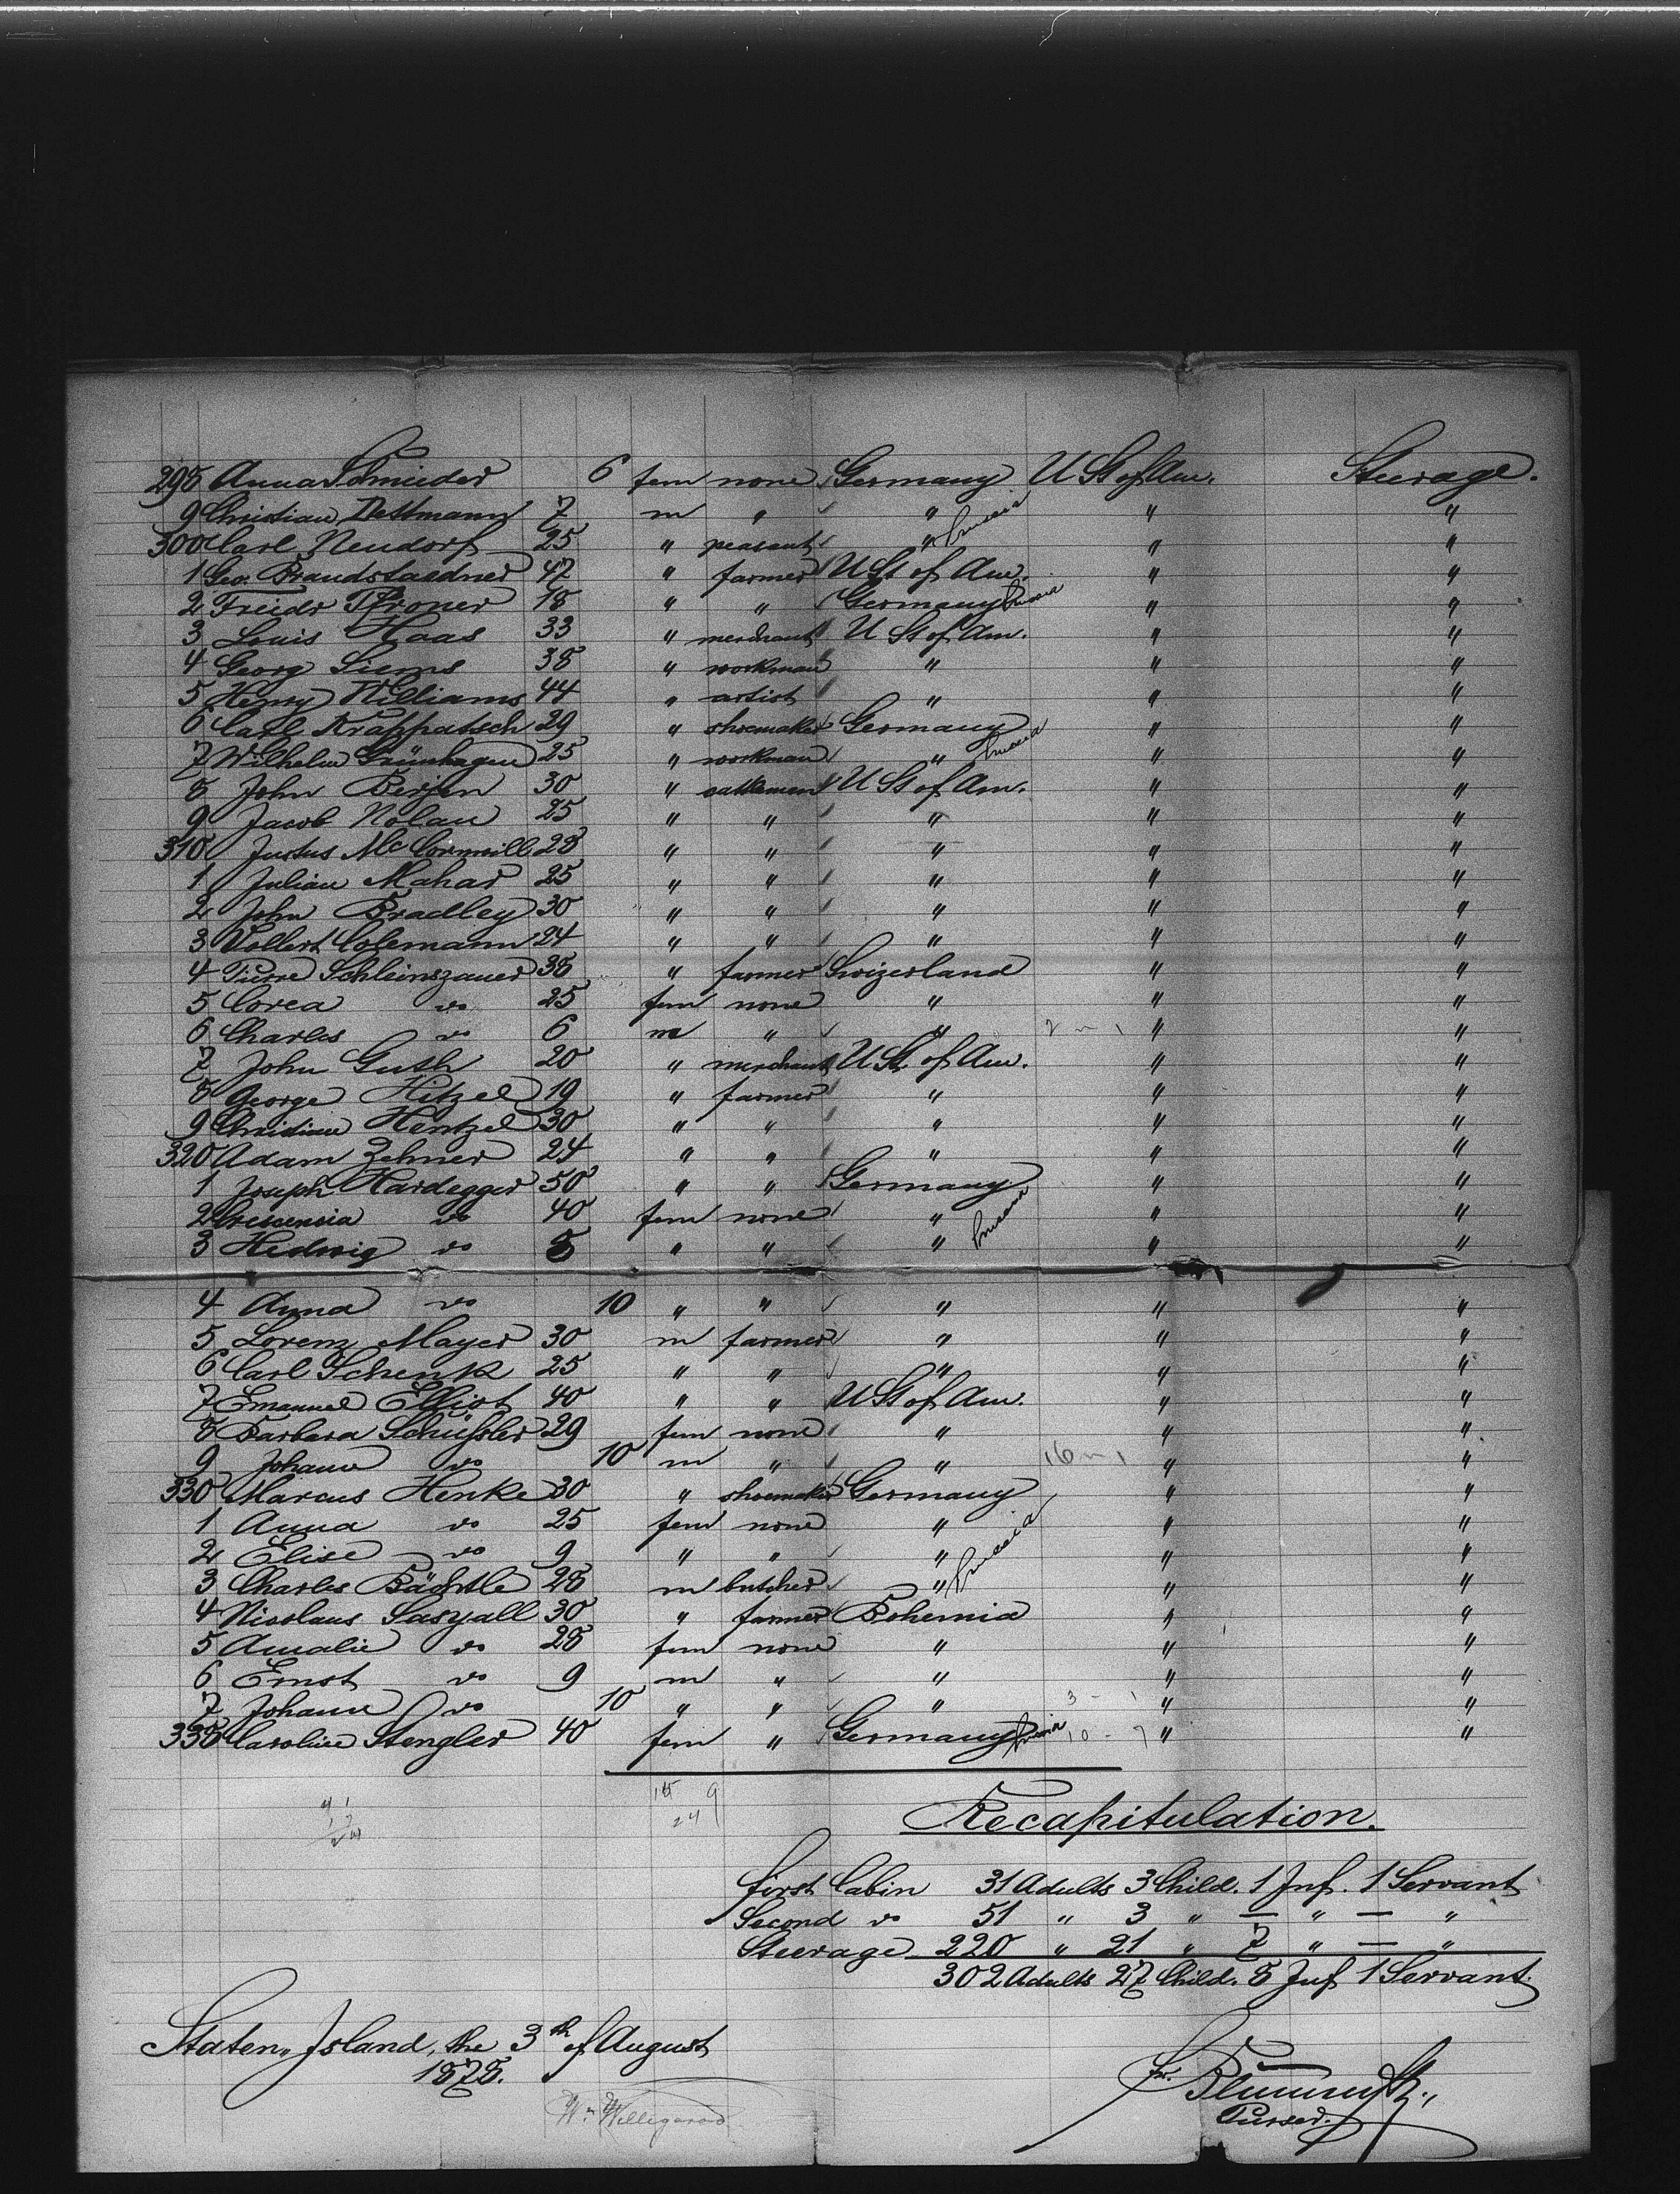 298 Anna Schneider 6 fem none Germany U St of Am. Steerage.
9 Christian Dettmann 7 m " " " "
300 Carl Neudorf 25 " peasant " Prussia " "
1 Geo. Brandstaedner 47 " farmer U St of Am. " "
2 Friedr Pfroner 18 " " Germany Prussia " "
3 Louis Haas 33 " merchant U St of Am. " "
4 Georg Siems 38 " workman " " "
5 Henry Williams 44 " artist " " "
6 Carl Krappatsch 29 " shoemaker Germany " "
7 Wilhelm Grünhagen 25 " workman " Prussia " "
8 John Berjen 30 " cattleman U St of Am. " "
9 Jacob Nolan 25 " " " " "
310 Justus 28 " " " " "
1 Julian Mahar 25 " " " " "
2 John Bradley 30 " " " " "
3 Vollert Colemann 24 " " " " "
4 Pierre Schleinszauer 38 " farmer Swizerland " "
5 Corea do 25 fem none " " "
6 Charles do 6 m " " " "
7 John Guth 20 " merchant U St. of Am. " "
8 George Hitzel 19 " farmer " " "
9 Christian Hentzel 30 " " " " "
320 Adam Zehner 24 " " " " "
1 Joseph Hardegger 50 " " Germany " "
2 Crescensia do 40 fem none " Prussia " "
3 Hedwig do 8 " " " " "
4 Anna do 10 " " " " "
5 Lorenz Mayer 30 m farmer " " "
6 Carl Schenk 25 " " " " "
7 Emanuel Elliot 40 " " U St of Am. " "
8 Barbara Schüssler 29 fem none " " "
9 Johann do 10 m " " " "
330 Marcus Henke 30 " shoemaker Germany " "
1 Anna do 25 fem none " " "
2 Elise do 9 " " " " "
3 Charles Bächtle 28 m butcher " Prussia " "
4 Nicolaus Sasyall 30 " farmer Bohemia " "
5 Amalie do 28 fem none " " "
6 Ernst do 9 m " " " "
7 Johann do 10 " " " " "
338 Caroline Stengler 40 fem " Germany Prussia " "
Recapitulation.
First Cabin 31 Adults 3 Child. 1 Inf. 1 Servant
Second do 51 " 3 " — " — "
Steerage 220 " 21 " 7 " — "
302 Adults 27 Child. 8 Inf 1 Servant.
Staten Island, the 3th of August
1878.
Wm Willigerod
Purser.